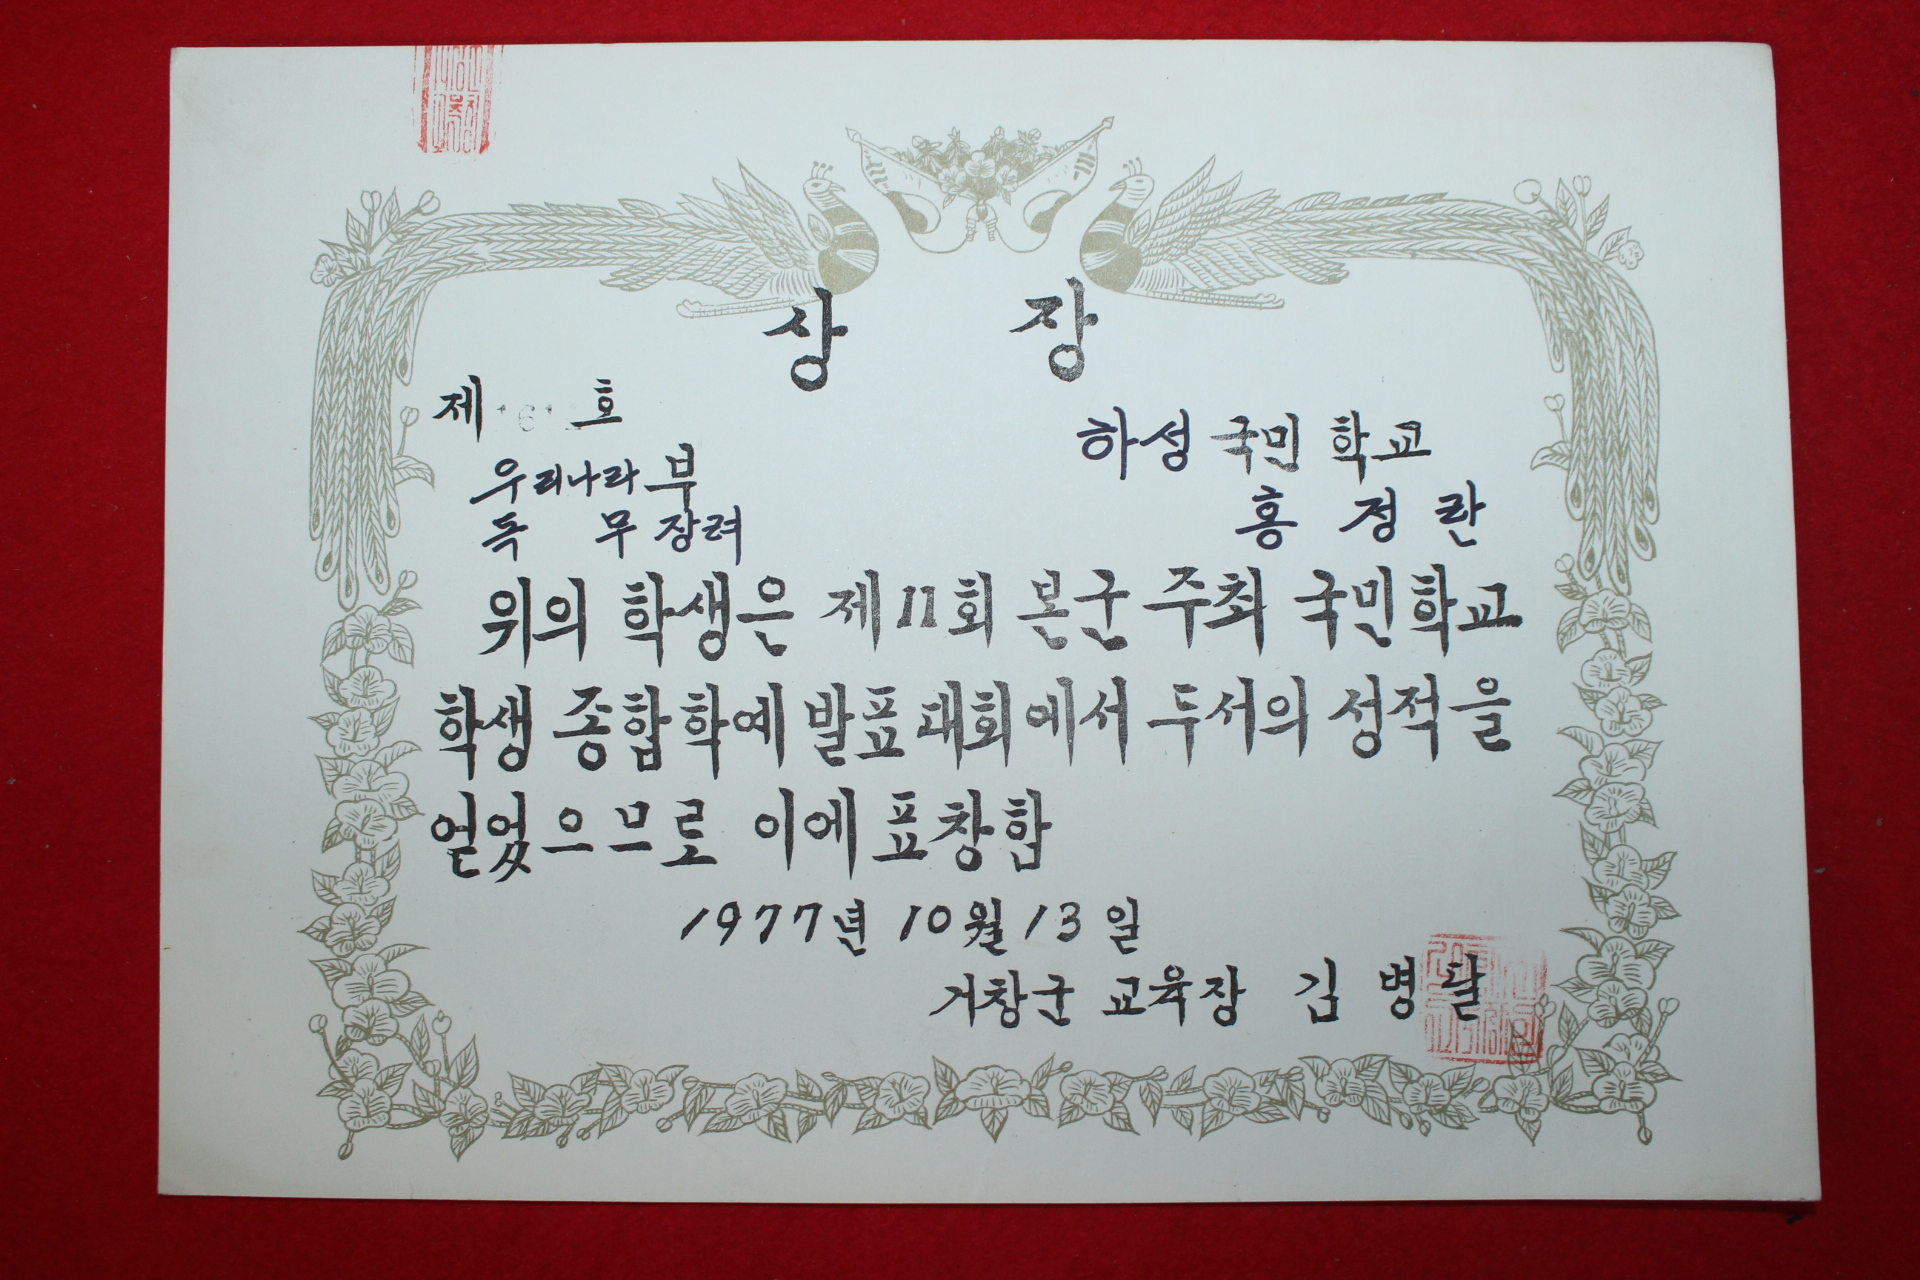 상 장
제 161 호
하성 국민 학교
우리나라 부
독 무 장려
홍 정 란
위의 학생은 제11회 본군 주최 국민학교
학생 종합학예 발표대회에서 두서의 성적을
얻었으므로 이에 표창함
1977년 10월 13일
거창군 교육장 김 병 달